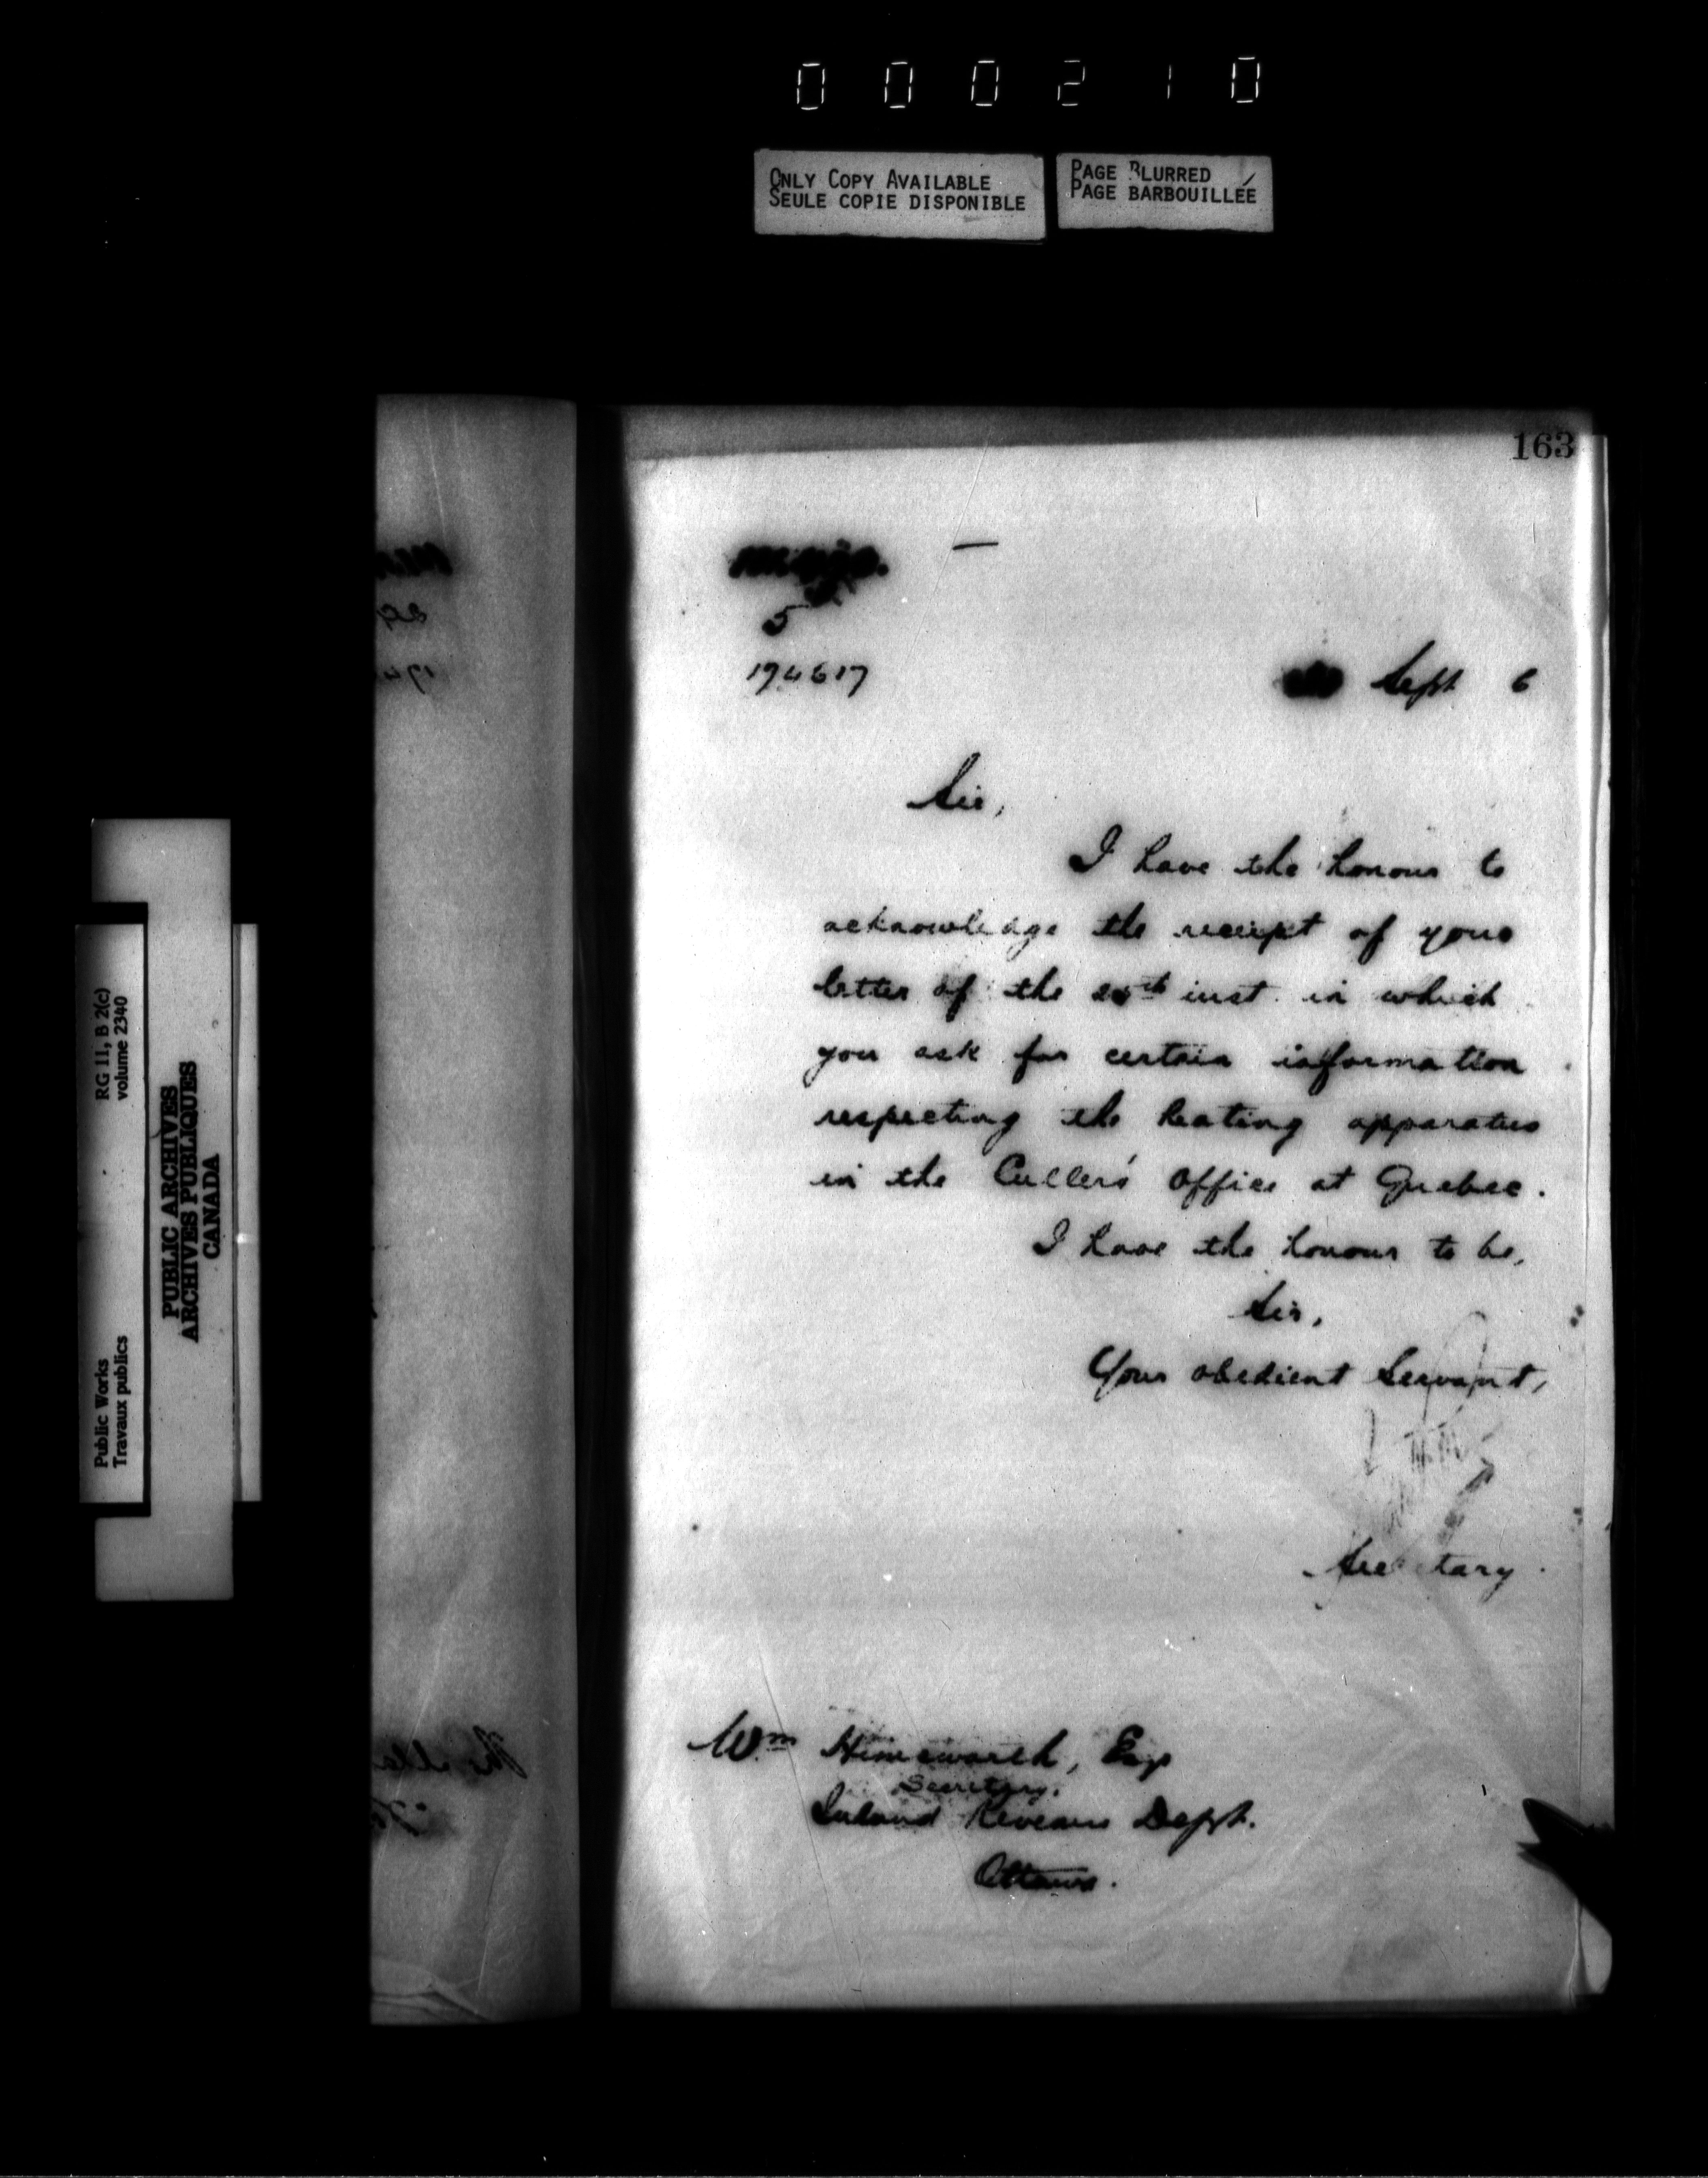 000210
ONLY COPY AVAILABLE
SEULE COPIE DISPONIBLE
PAGE BLURRED
PAGE BARBOUILLÉE
163
5
174617
Sept 6
Sir,
I have the honour to
acknowledge the receipt of your
letter of the inst. in which
you ask for certain information
respecting the heating apparatus
in the Culler's Office at Quebec.
I have the honour to be,
Sir,
Your obedient Servant,
Secretary.
Wm Himsworth, Esq
Secretary,
Inland Revenue Dept.
Ottawa.
RG 11, B 2(c)
volume 2340
Public Works
Travaux publics
PUBLIC ARCHIVES
ARCHIVES PUBLIQUES
CANADA